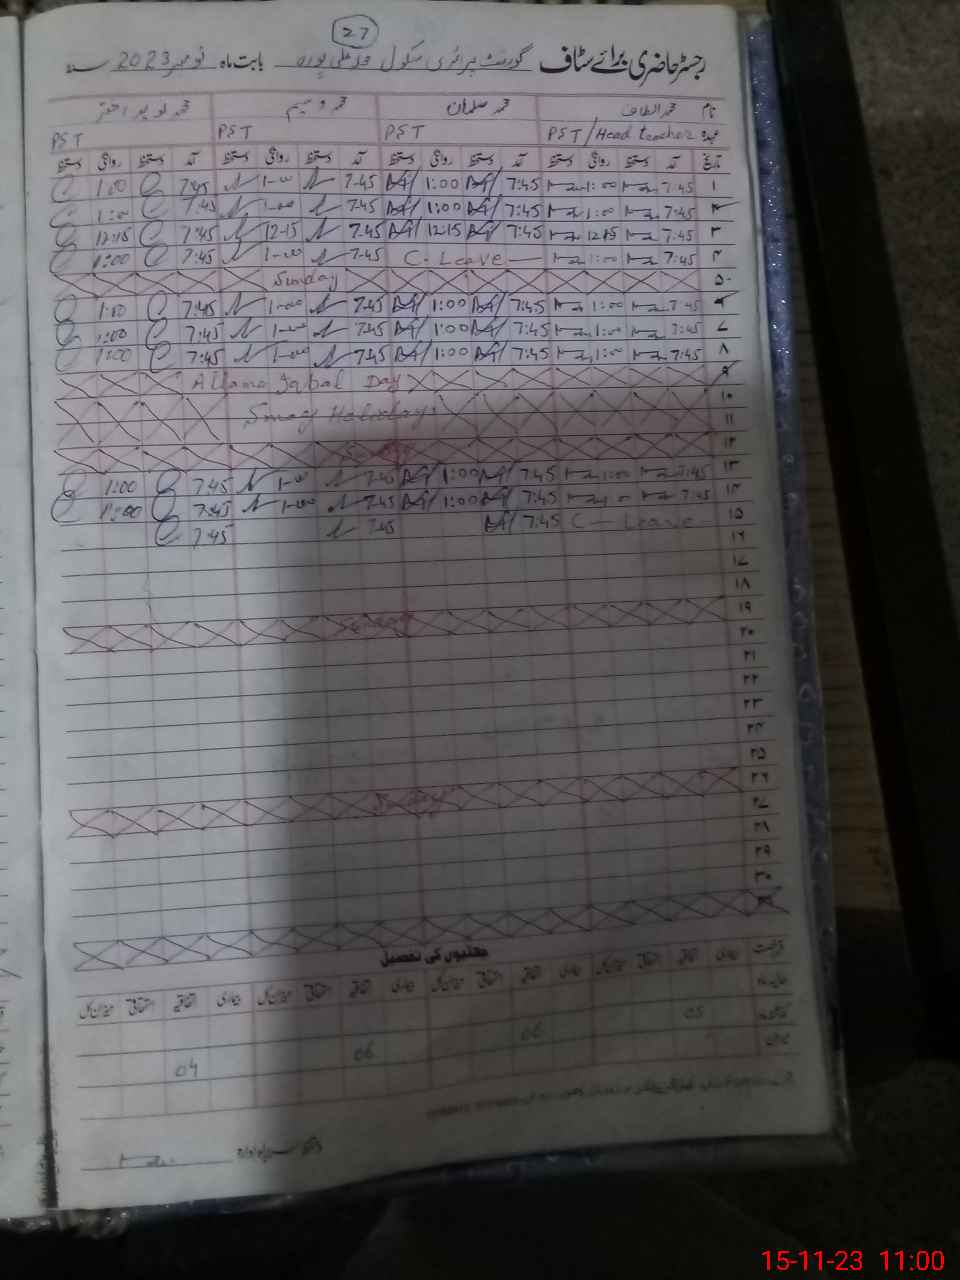 27
رجسٹر حاضری برائے سٹاف گورنمنٹ پرائمری سکول بابت ماہ نومبر 2023 سنہ
نام محمد الطاف محمد سلمان محمد وسیم
عہدہ PST/Head teacher PST PST PST
تاریخ آمد دستخط روانگی دستخط آمد دستخط روانگی دستخط آمد دستخط روانگی دستخط آمد دستخط روانگی دستخط
۱ 7:45 1:00 7:45 1:00 7-45 1-00 7:45 1:00
۲ 7:45 1:00 7:45 1:00 7-45 1-00 7:45 1:00
۳ 7:45 12:15 7:45 12:15 7-45 12-15 7:45 12:15
۴ 7:45 1:00 C-Leave 7-45 1-00 7:45 1:00
۵ Sunday
۶ 7:45 1:00 7:45 1:00 7-45 1-00 7:45 1:00
۷ 7:45 1:00 7:45 1:00 7-45 1-00 7:45 1:00
۸ 7:45 1:00 7:45 1:00 7-45 1-00 7:45 1:00
۹ Allama Iqbal Day
۱۰ Smog Holiday
۱۱
۱۲ Sunday
۱۳ 7:45 1:00 7:45 1:00 7-45 1-00 7:45 1:00
۱۴ 7:45 7:45 1:00 7-45 1-00 7:45 1:00
۱۵ C-Leave 7:45 7-45 7:45
۱۶
۱۷
۱۸
۱۹ Sunday
۲۰
۲۱
۲۲
۲۳
۲۴
۲۵
۲۶ Sunday
۲۷
۲۸
۲۹
۳۰
۳۱
چھٹیوں کی تفصیل
رخصت بیماری اتفاقیہ استحقاقی میزان کل بیماری اتفاقیہ استحقاقی میزان کل بیماری اتفاقیہ استحقاقی میزان کل بیماری اتفاقیہ استحقاقی میزان کل
05 06 06 04
15-11-23 11:00